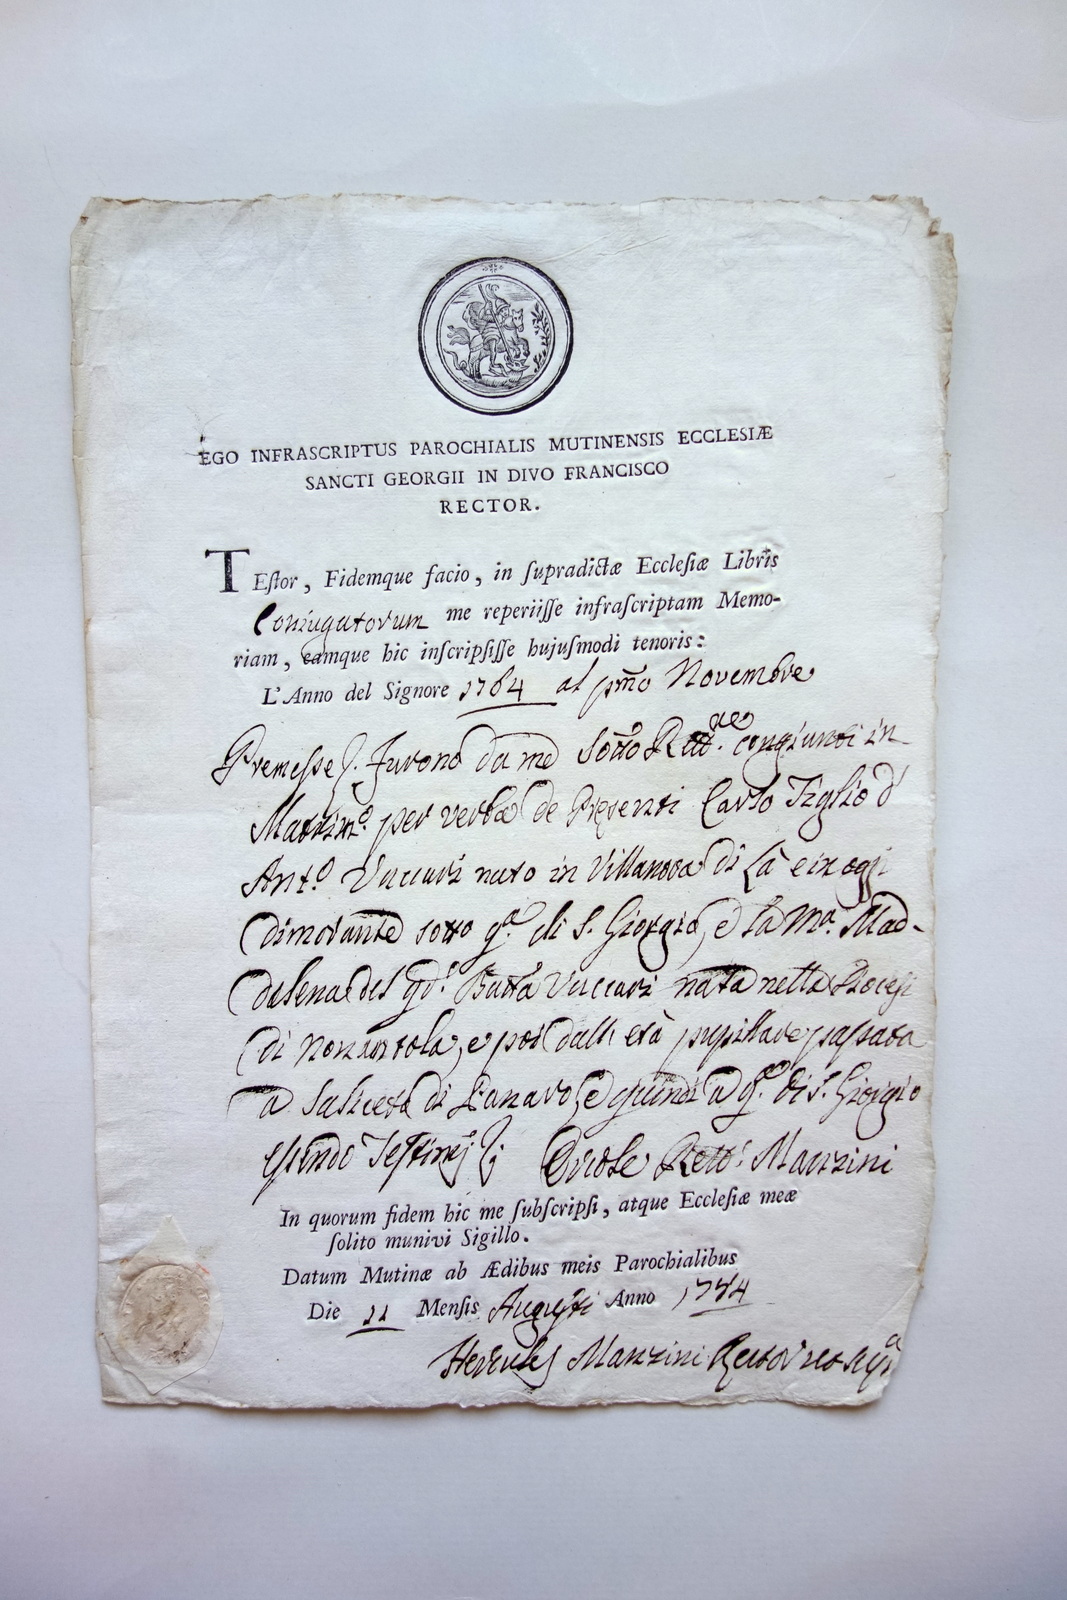 EGO INFRASCRIPTUS PAROCHIALIS MUTINENSIS ECCLESIÆ
SANCTI GEORGII IN DIVO FRANCISCO
RECTOR.
TEſtor, Fidemque facio, in ſupradictæ Eccleſiæ Libris
Coniugatorum me reperiiſſe infraſcriptam Memo-
riam, eamque hic inſcripſiſſe hujuſmodi tenoris:
L'Anno del Signore 1764 al pmo Novembre
Premesse furono da me sotto congiunti in
Matrimo. per verba de Presenti Carlo Figlio d'
Anto. Vaccari nato in Villanova di Là e in oggi
dimorante sotto qa. di S. Giorgio, e la Ma. Mad-
dalena del qdm. Batta Vaccari nata nella Diocesi
di Nonantola, e poi dall' età pupillare passata
a Saliceto di Panaro, e quindi a qa. di S. Giorgio
essendo Testimj Ercole Rettr. Manzini
In quorum fidem hic me ſubſcripſi, atque Eccleſiæ meæ
ſolito munivi Sigillo.
Datum Mutinæ ab Ædibus meis Parochialibus
Die 11 Menſis Augusti Anno 1784
Hercules Manzini Rector